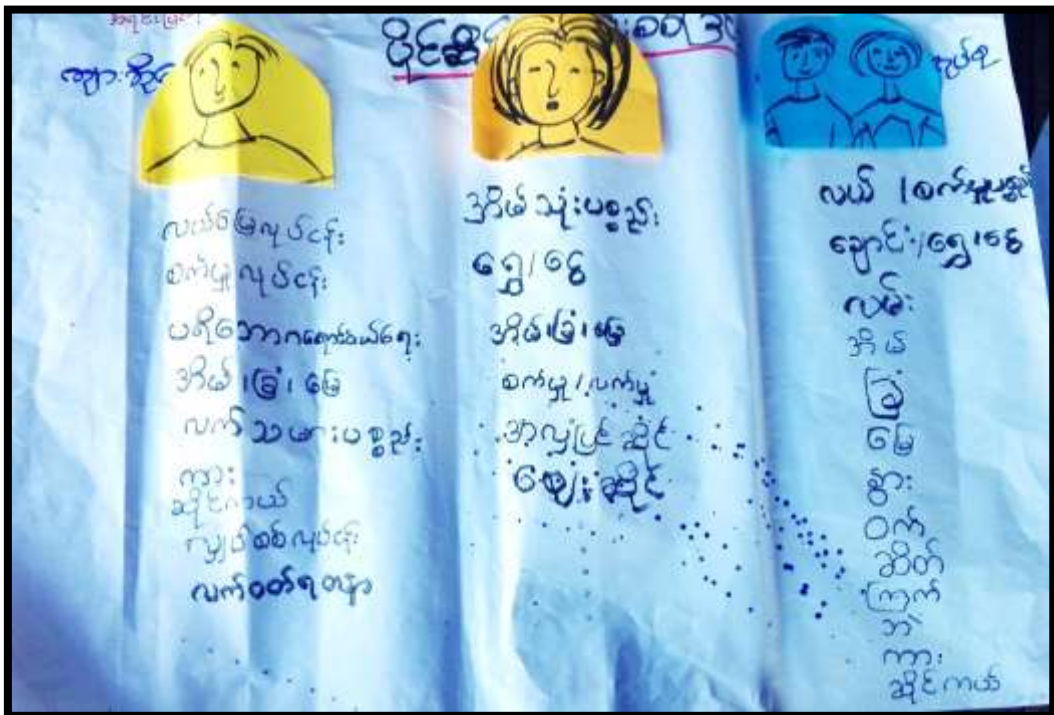 ပိုင်ဆိုင်
ကျား
လယ်မြေလုပ်ငန်း
စက်မှုလုပ်ငန်း
ပရိဘောဂရောင်းဝယ်ရေး
အိမ်၊ ခြံ၊ မြေ
လက်သမားပစ္စည်း
ကား
ဆိုင်ကယ်
လျှပ်စစ်လုပ်ငန်း
လက်ဝတ်ရတနာ
အိမ်သုံးပစ္စည်း
ရွှေ/ငွေ
အိမ်၊ ခြံ၊ မြေ
စက်မှု/လက်မှု
အလှပြင်ဆိုင်
ဈေးဆိုင်
လယ် /စက်မှုပစ္စည်း
ချောင်း/ရွှေ၊ငွေ
လမ်း
အိမ်
ခြံ
မြေ
နွား
ဝက်
ဆိတ်
ကြက်
ဘဲ
ကား
ဆိုင်ကယ်